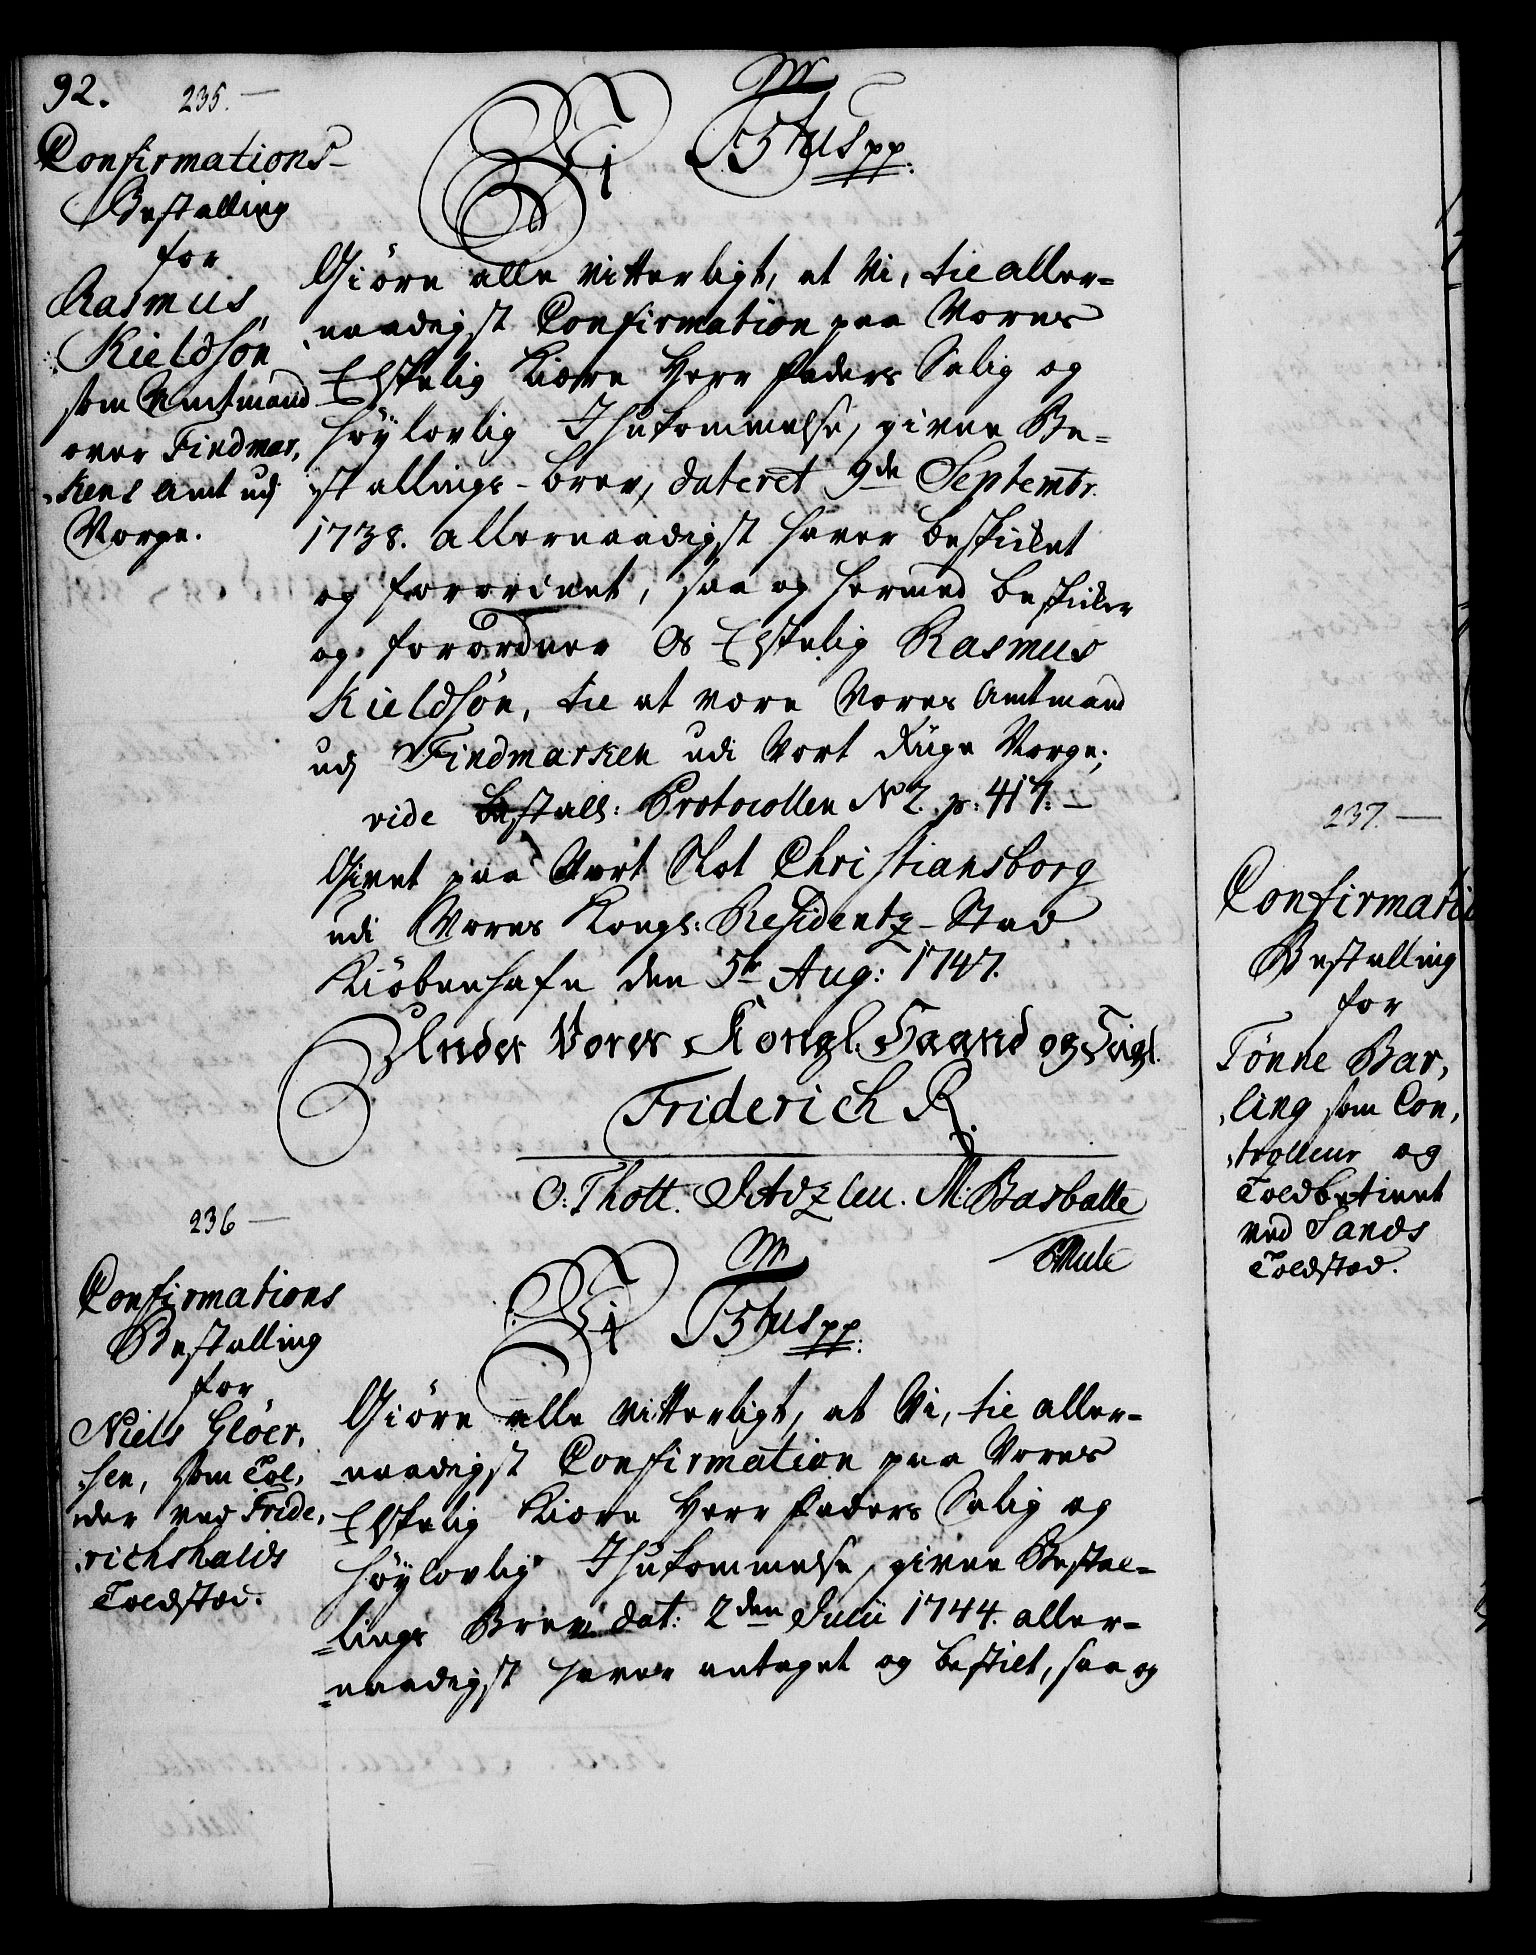 92.
235.
Confirmations-
Bestalling
for
Rasmus
Kieldsön
som Amtmand
over Findmar,
,kens Amt udj
Norge.
Vi Fr: 5tus pp:
Giöre alle vitterligt, at Vi, til aller=
naadigst Confirmation paa Vores
Elskelig Kiære Herr Faders Salig og
Höylovlig Ihukommelse, given Be=
stallings-brev, dateret 9de Septembr.
1738. allernaadigst haver beskicket
og forordnet, saa og hermed beskicker
og forordner Os Elskelig Rasmus
Kieldsön, til at være Vores Amtmand
udj Findmarken udi Vort Rüge Norge;
vide Bestall: Protocollen No 2. p: 417:
Givet paa Vort Slot Christiansborg
udi Vores Kongl: Residentz-Stad
Kiöbenhafn den 5te Aug: 1747.
Under Vores Kongl. Haand og Seigl.
Friderich R.
O: Thott. M: Barballe
Mule
236
Confirmations
Bestalling
for
Niels Glöer,
,sen, som Tol,
,der ved Fride,
,richshalds
Toldsted.
Vi Fr: 5tus pp:
Giöre alle vitterligt, at Vi, til aller-
naadigst Confirmation paa Vores
Elskelig Kiære Herr Faders Salig og
Höylovlig Ihukommelse, given Bestal-
lings Brev dat: 2den Julii 1744. aller-
naadigst haver antaget og bestilt, saa og
237.
Confirmatio
Bestalling
for
Tönne Bar,
,ling som Con,
,trolleur og
Toldbetient
ved Sands
Toldsted.